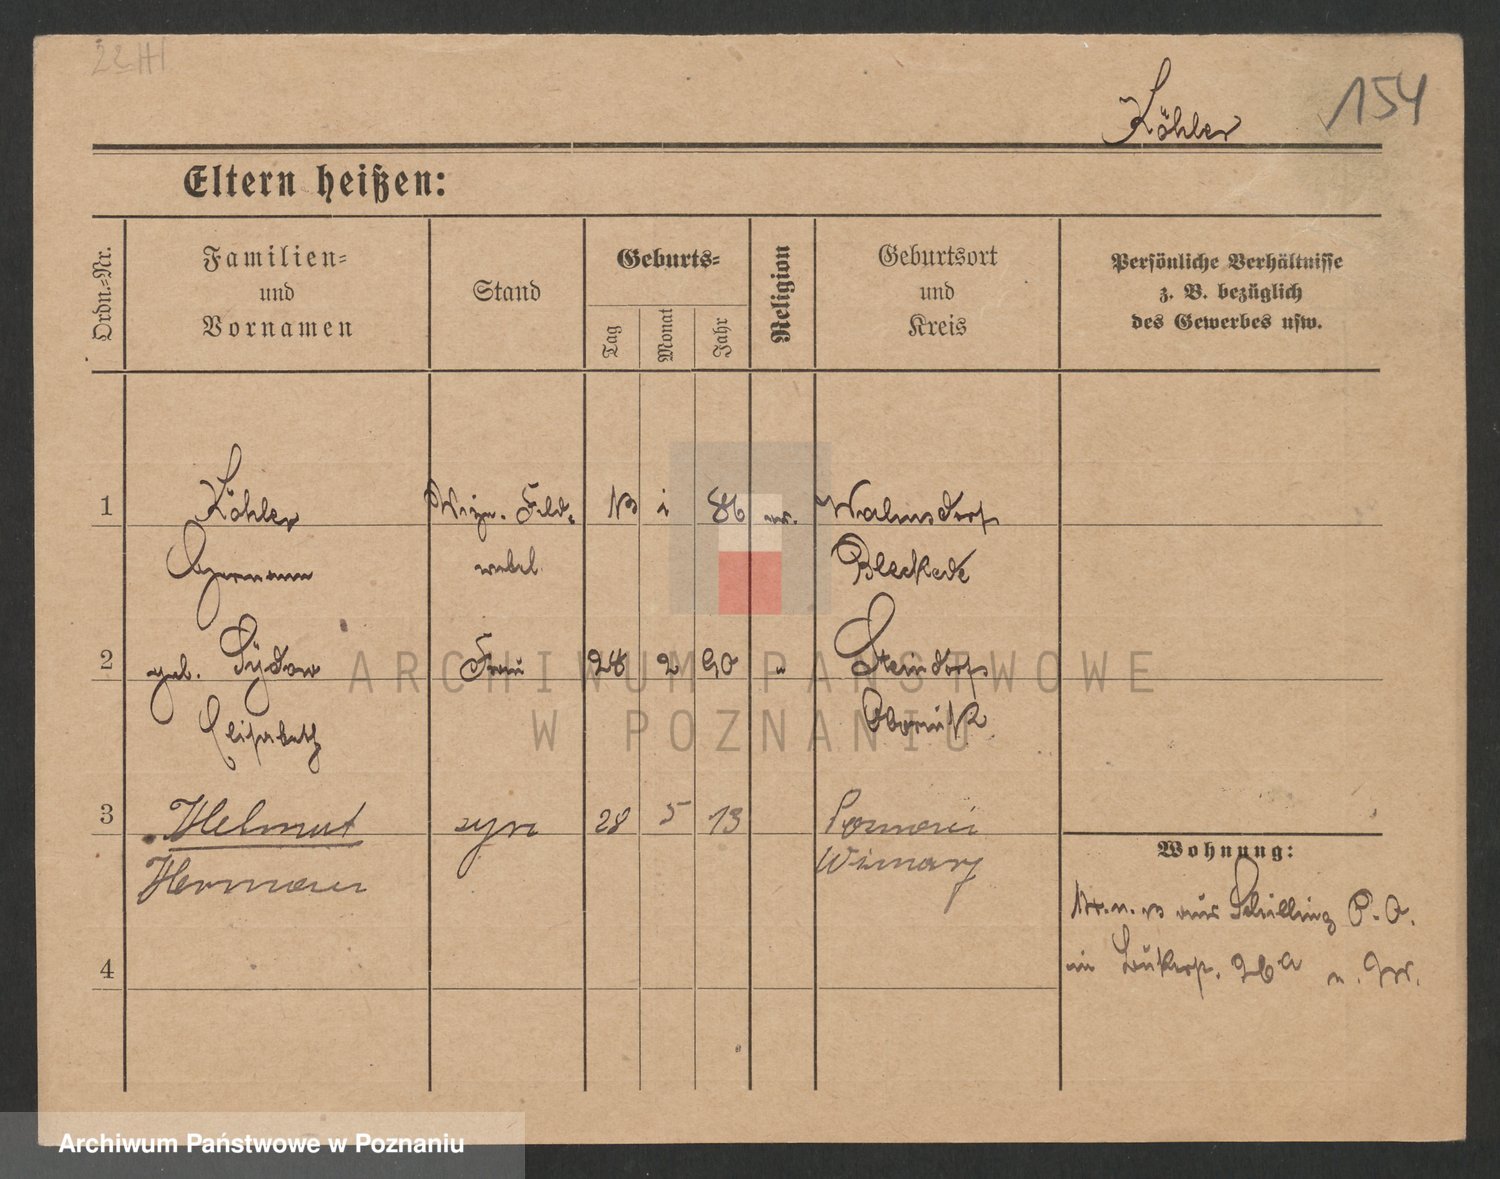 22 III
Köhler 154
Eltern heißen:
Ordn.-Nr.
Familien-
und
Vornamen
Stand
Geburts-
Tag
Monat
Jahr
Religion
Geburtsort
und
Kreis
Persönliche Verhältnisse
z. B. bezüglich
des Gewerbes usw.
1 Köhler Vize-Feld- 13 1 86 ev. Walmsdorf
Hermann webel Bleckede
2 geb. Sydow Frau 28 2 90 " Steindorf
Elisabeth Obornik
3 Helmut syn 28 5 13 Poznań
Hermann Winiary
Wohnung:
aus Schilling P. O.
in 26a
4
ARCHIWUM PAŃSTWOWE
W POZNANIU
Archiwum Państwowe w Poznaniu